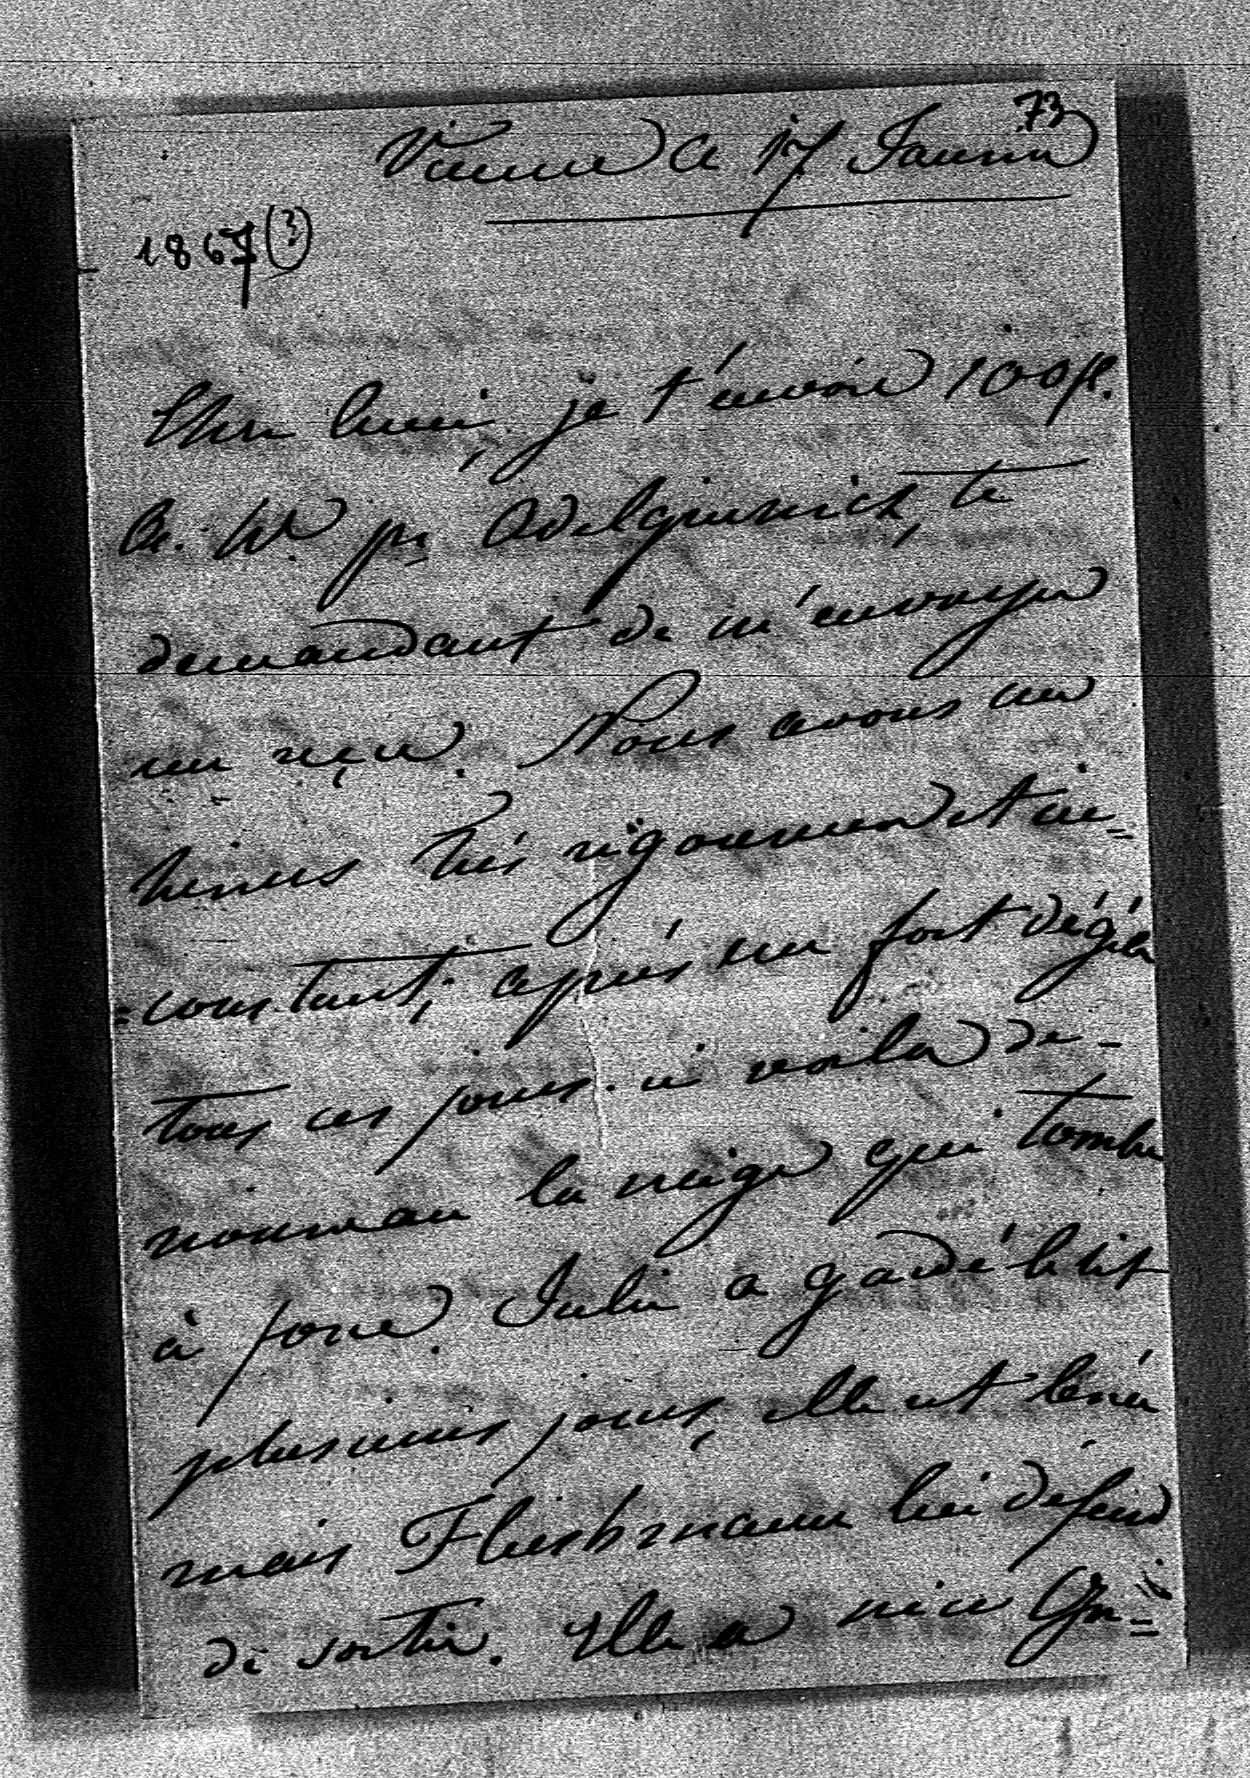 73
Vienne ce 17 Janvier
1867 (?)
Cher ami, je t'envoie 100 fl.
B. W. pr. te
demandant de m'envoyer
un reçu. Nous avons un
hivers très rigoureux et in-
=constant; après un fort dégéla
tous ces jours-ci voila de-
nouveau la neige qui tombe
à force. Julie a gardé le lit
plusieurs jours, elle est levée
mais Flieshmann lui défend
de sortir. Elle a